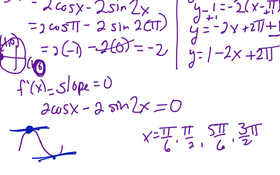 2cosx - 2sin2x
= 2cosπ - 2 sin 2(π)
= 2(-1) - 2(0) = -2
y - 1 = -2(x - π)
+1 +1
y = -2x + 2π + 1
y = 1 - 2x + 2π
f'(x) = slope = 0
2cosx - 2 sin2x = 0
x = π/6, π/2, 5π/6, 3π/2